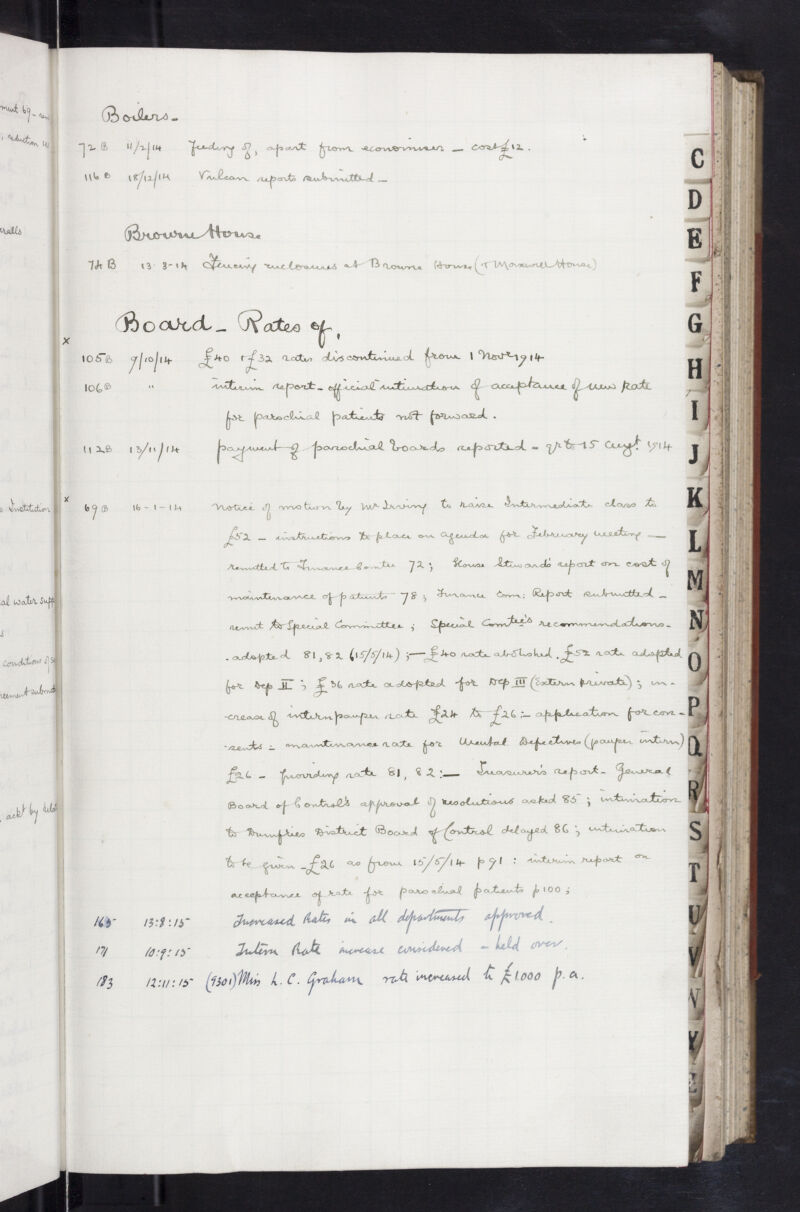 Boilers -
72 B 11/2/14 Feeding of, apart from economiser - cost £12.
116 B 18/12/14 Vulcan reports submitted -
Browne House
74 B 13-3-14 Fencing enclosures at Browne House (& Maxwell House)
Board - Rates of,
x
105 B 9/10/14 £40 & £32 rates discontinued from 1 Novr 1914
106 B " interim report - official intimation of acceptance of new rate
for parochial patients not forward.
112 B 13/11/14 payment of parochial boards reported - qr to 15 Augt. 1914
x 69 B 16-1-14 Notice of motion by Mr Irving to raise Intermediate class to
£52 - instructions to place on agenda for February meeting -
remitted to Finance Comtee 72; House Steward's report on cost of
maintenance of patients 78; Finance Com: Report submitted -
remit to Special Committee; Special Comtee's recommendations -
adopted 81, 82 (15/5/14); - £40 rate abolished. £52 rate adopted
for Dep II; £36 rate adopted for Dep III (Extern private); in-
crease of intern pauper rate £24 to £26: - application for con-
sents - maintenance rate for Mental Defectives (pauper intern)
£26 - providing rate 81, 82: - Treasurer's report - General
Board of Control's approval of resolutions asked 85; intimation
to Dumfries District Board of Control delayed 86; intimation
to be given - £26 as from 15/5/14 p 91: interim report on
acceptance of rate for parochial patients p 100;
165 13:8:15 Increased Rates in all departments approved.
171 10:9:15 Intern Rate increase considered - held over.
183 12:11:15 (9301) Miss L. C. Graham rate increased to £1000 p.a.
C
D
E
F
G
H
I
J
K
L
M
N
O
P
Q
R
S
T
U
V
W
Y
Institution
al water supp
conditions of
ackt by